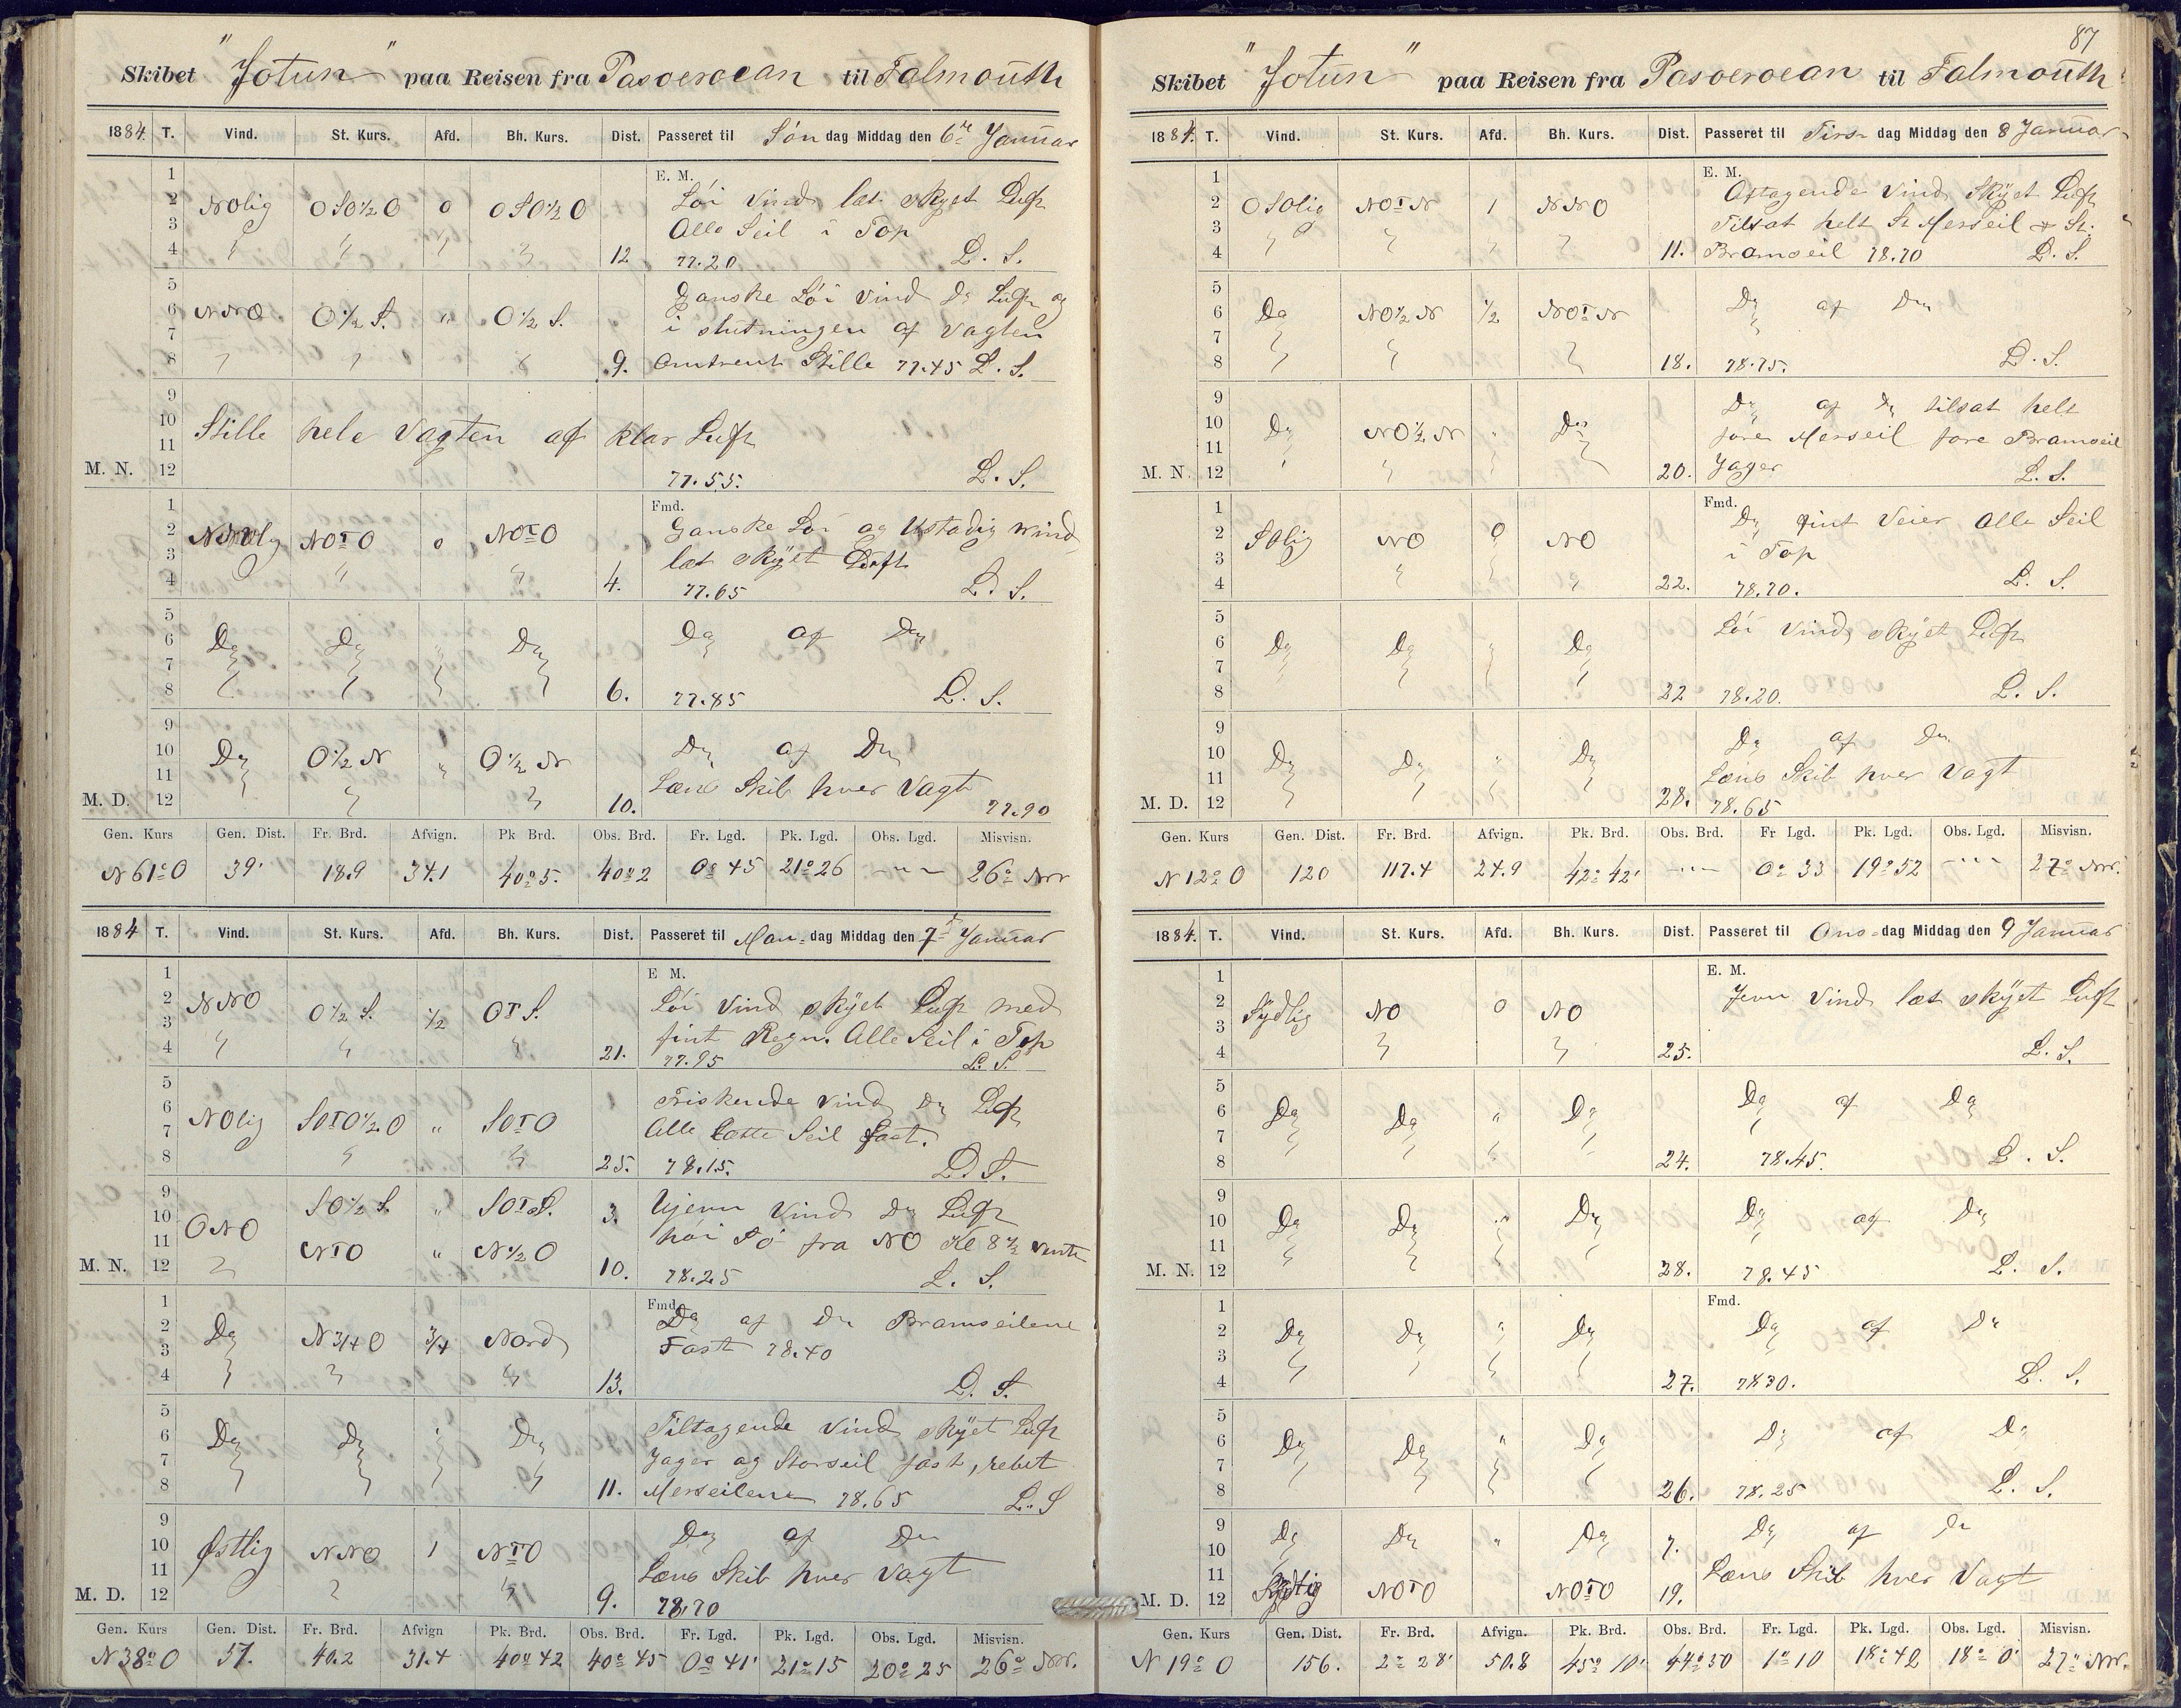 Skibet "Jotun" paa Reisen fra Pasoeroean til Falmouth
1884. T. Vind. St. Kurs. Afd. Bh. Kurs. Dist. Passeret til Søndag Middag den 6te Januar
1 E. M.
2 NOlig OSO½O 0 OSO½O Löi Vind let skyet Luft
3 Alle Seil i Top
4 " " " " 12 77.20 L. S.
5 Ganske Löi Vind Do Luft og
6 NNO. O½S. " O½S. i slutningen af Vagten
7
8 " " " 9. omtrent Stille 77.45 L. S.
9
10 Stille hele Vagten af klar Luft
11
M. N. 12 77.55. L. S.
1 Fmd.
2 NOTO 0 NOTO Ganske Löi og Ustadig Vind
3 let skyet Luft
4 " " 4. 77.65 L. S.
5
6 Do Do " Do Do af Do
7
8 6. 77.85 L. S.
9
10 Do O½N " O½N Do af Do
11 Læns Skib hver Vagt
M. D. 12 " " 10. 77.90
Gen. Kurs Gen. Dist. Fr. Brd. Afvign. Pk Brd. Obs. Brd. Fr. Lgd. Pk. Lgd. Obs. Lgd. Misvisn.
N 61° O 39' 18.9 34.1 40° 5. 40° 2 0° 45 21° 26 - " - 26° NW
1884 T. Vind. St. Kurs. Afd. Bh. Kurs. Dist. Passeret til Man-dag Middag den 7 Januar
1 E M.
2 NNO O½S. ½ OTS. Löi Vind skyet Luft med
3 fint Regn. Alle Seil i Top
4 " " " 21. 77.95 L. S.
5
6 NOlig SOTO½O " SOTO Friskende Vind Do Luft
7 Alle lette Seil fast.
8 " " 25. 78.15. L. S.
9 SO½S. " SOTS. 3. Ujevn Vind Do Luft
10 ONO
11 NTO " N½O höi Sö fra NO Kl 8½ vendte
M. N. 12 " 10. 78.25 L. S.
1 Fmd.
2 Do N¾O ¾ Nord Do af Do Bramseilene
3 Fast 78.40
4 " " " 13. L. S.
5
6 Do Do " Do Tiltagende Vind skyet Luft
7 Jager og Storseil fast, rebet
8 11. Merseilene 78.65 L. S
9
10 Østlig NNO 1 NTO Do af Do
11 Læns Skib hver Vagt
M. D. 12 " " 9. 78.70
Gen. Kurs Gen. Dist. Fr. Brd. Afvign Pk. Brd. Obs. Brd. Fr. Lgd. Pk. Lgd. Obs. Lgd. Misvisn.
N 38° O 51. 40.2 31.4 40° 42 40° 45 0° 41' 21° 15 20° 25 26° NW.
87
Skibet "Jotun" paa Reisen fra Pasoeroean til Falmouth
1884. T. Vind. St. Kurs. Afd. Bh. Kurs. Dist. Passeret til Tirsdag Middag den 8 Januar
1 E. M.
2 OSOlig NOTN 1 NNO Aftagende Vind Skyet Luft
3 Tilsat helt St Merseil & St.
4 " " " " 11. Bramseil 78.70 L. S.
5
6 Do NO½N ½ NOTN Do af Do
7
8 " " " 18. 78.75. L. S.
9
10 Do NO¼N " Do Do af Do tilsat helt
11 före Merseil fore Bramseil
M. N. 12 " " " 20. Jager L. S.
1 Fmd.
2 SOlig NO 0 NO Do fint Veier Alle Seil
3 i Top
4 " " " 22. 78.70. L. S.
5
6 Do Do " Do Löi Vind, skyet Luft
7
8 22 78.20. L. S.
9
10 Do Do " Do Do af Do
11 Læns Skib hver Vagt
M. D. 12 28. 78.65
Gen. Kurs Gen. Dist. Fr. Brd. Afvign. Pk. Brd. Obs. Brd. Fr Lgd. Pk. Lgd. Obs. Lgd. Misvisn.
N 12° O 120 117.4 24.9 42° 42' - " - 0° 33 19° 52 - " - 27° NW.
1884. T. Vind. St. Kurs. Afd. Bh. Kurs. Dist. Passeret til Ons-dag Middag den 9 Januar
1 E. M.
2 Sydlig NO 0 NO Jevn Vind let skyet Luft
3
4 " " 25. L. S.
5
6 Do Do " Do Do af Do
7
8 24. 78.45. L. S.
9
10 Do Do " Do Do af Do
11
M. N. 12 28. 78.45 L. S.
1 Fmd.
2 Do Do " Do Do af Do
3
4 27. 78.30. L. S.
5
6 Do Do " Do Do af Do
7
8 26. 78.25 L. S.
9 Do Do " Do 7. Do af Do
10
11 Læns Skib hver Vagt
M. D. 12 Sydlig NOTO NOTO 19.
Gen. Kurs Gen. Dist. Fr. Brd. Afvign. Pk. Brd. Obs. Brd. Fr. Lgd. Pk. Lgd. Obs. Lgd. Misvisn.
N 19° O 156. 2° 28' 50.8 45° 10' 44° 50 1° 10 18° 42 18° 0' 27° NW.